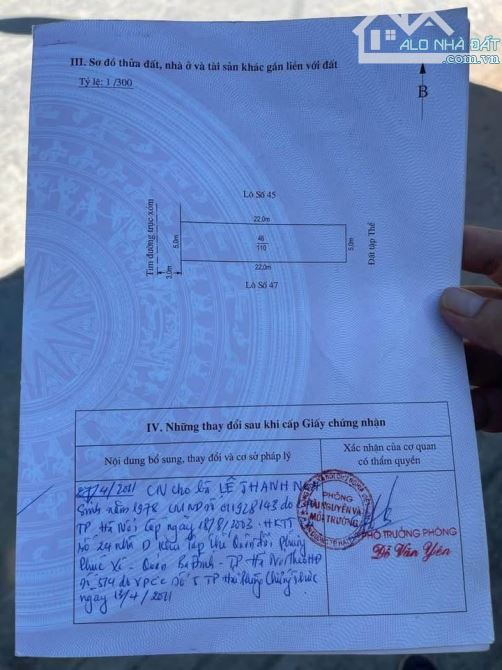 ALO NHÀ ĐẤT
.com.vn
III. Sơ đồ thửa đất, nhà ở và tài sản khác gắn liền với đất
Tỷ lệ: 1 /300
B
Lô Số 45
22,0m
Tim đường trục xóm
3,0m
5,0m
46
110
5,0m
Đất tập Thể
22,0m
Lô Số 47
IV. Những thay đổi sau khi cấp Giấy chứng nhận
Nội dung bổ sung, thay đổi và cơ sở pháp lý
Xác nhận của cơ quan có thẩm quyền
27/4/2011 CN cho bà LÊ THANH NGA
Sinh năm 1978 CMND số 011928143 do CA
TP Hà Nội cấp ngày 18/8/2003. HKTT
số 24 nhà D Khu tập thể Quân đội phường
- Quận Ba Đình - TP Hà Nội Theo HĐ
số 574 do VPCC số 5 TP Hải Phòng Chứng thực
ngày 13/4/2011
PHÒNG
TÀI NGUYÊN VÀ
MÔI TRƯỜNG
PHÓ TRƯỞNG PHÒNG
Đỗ Văn Yên